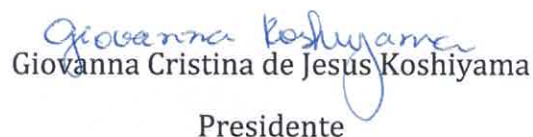 Giovanna Koshiyama
Giovanna Cristina de Jesus Koshiyama
Presidente